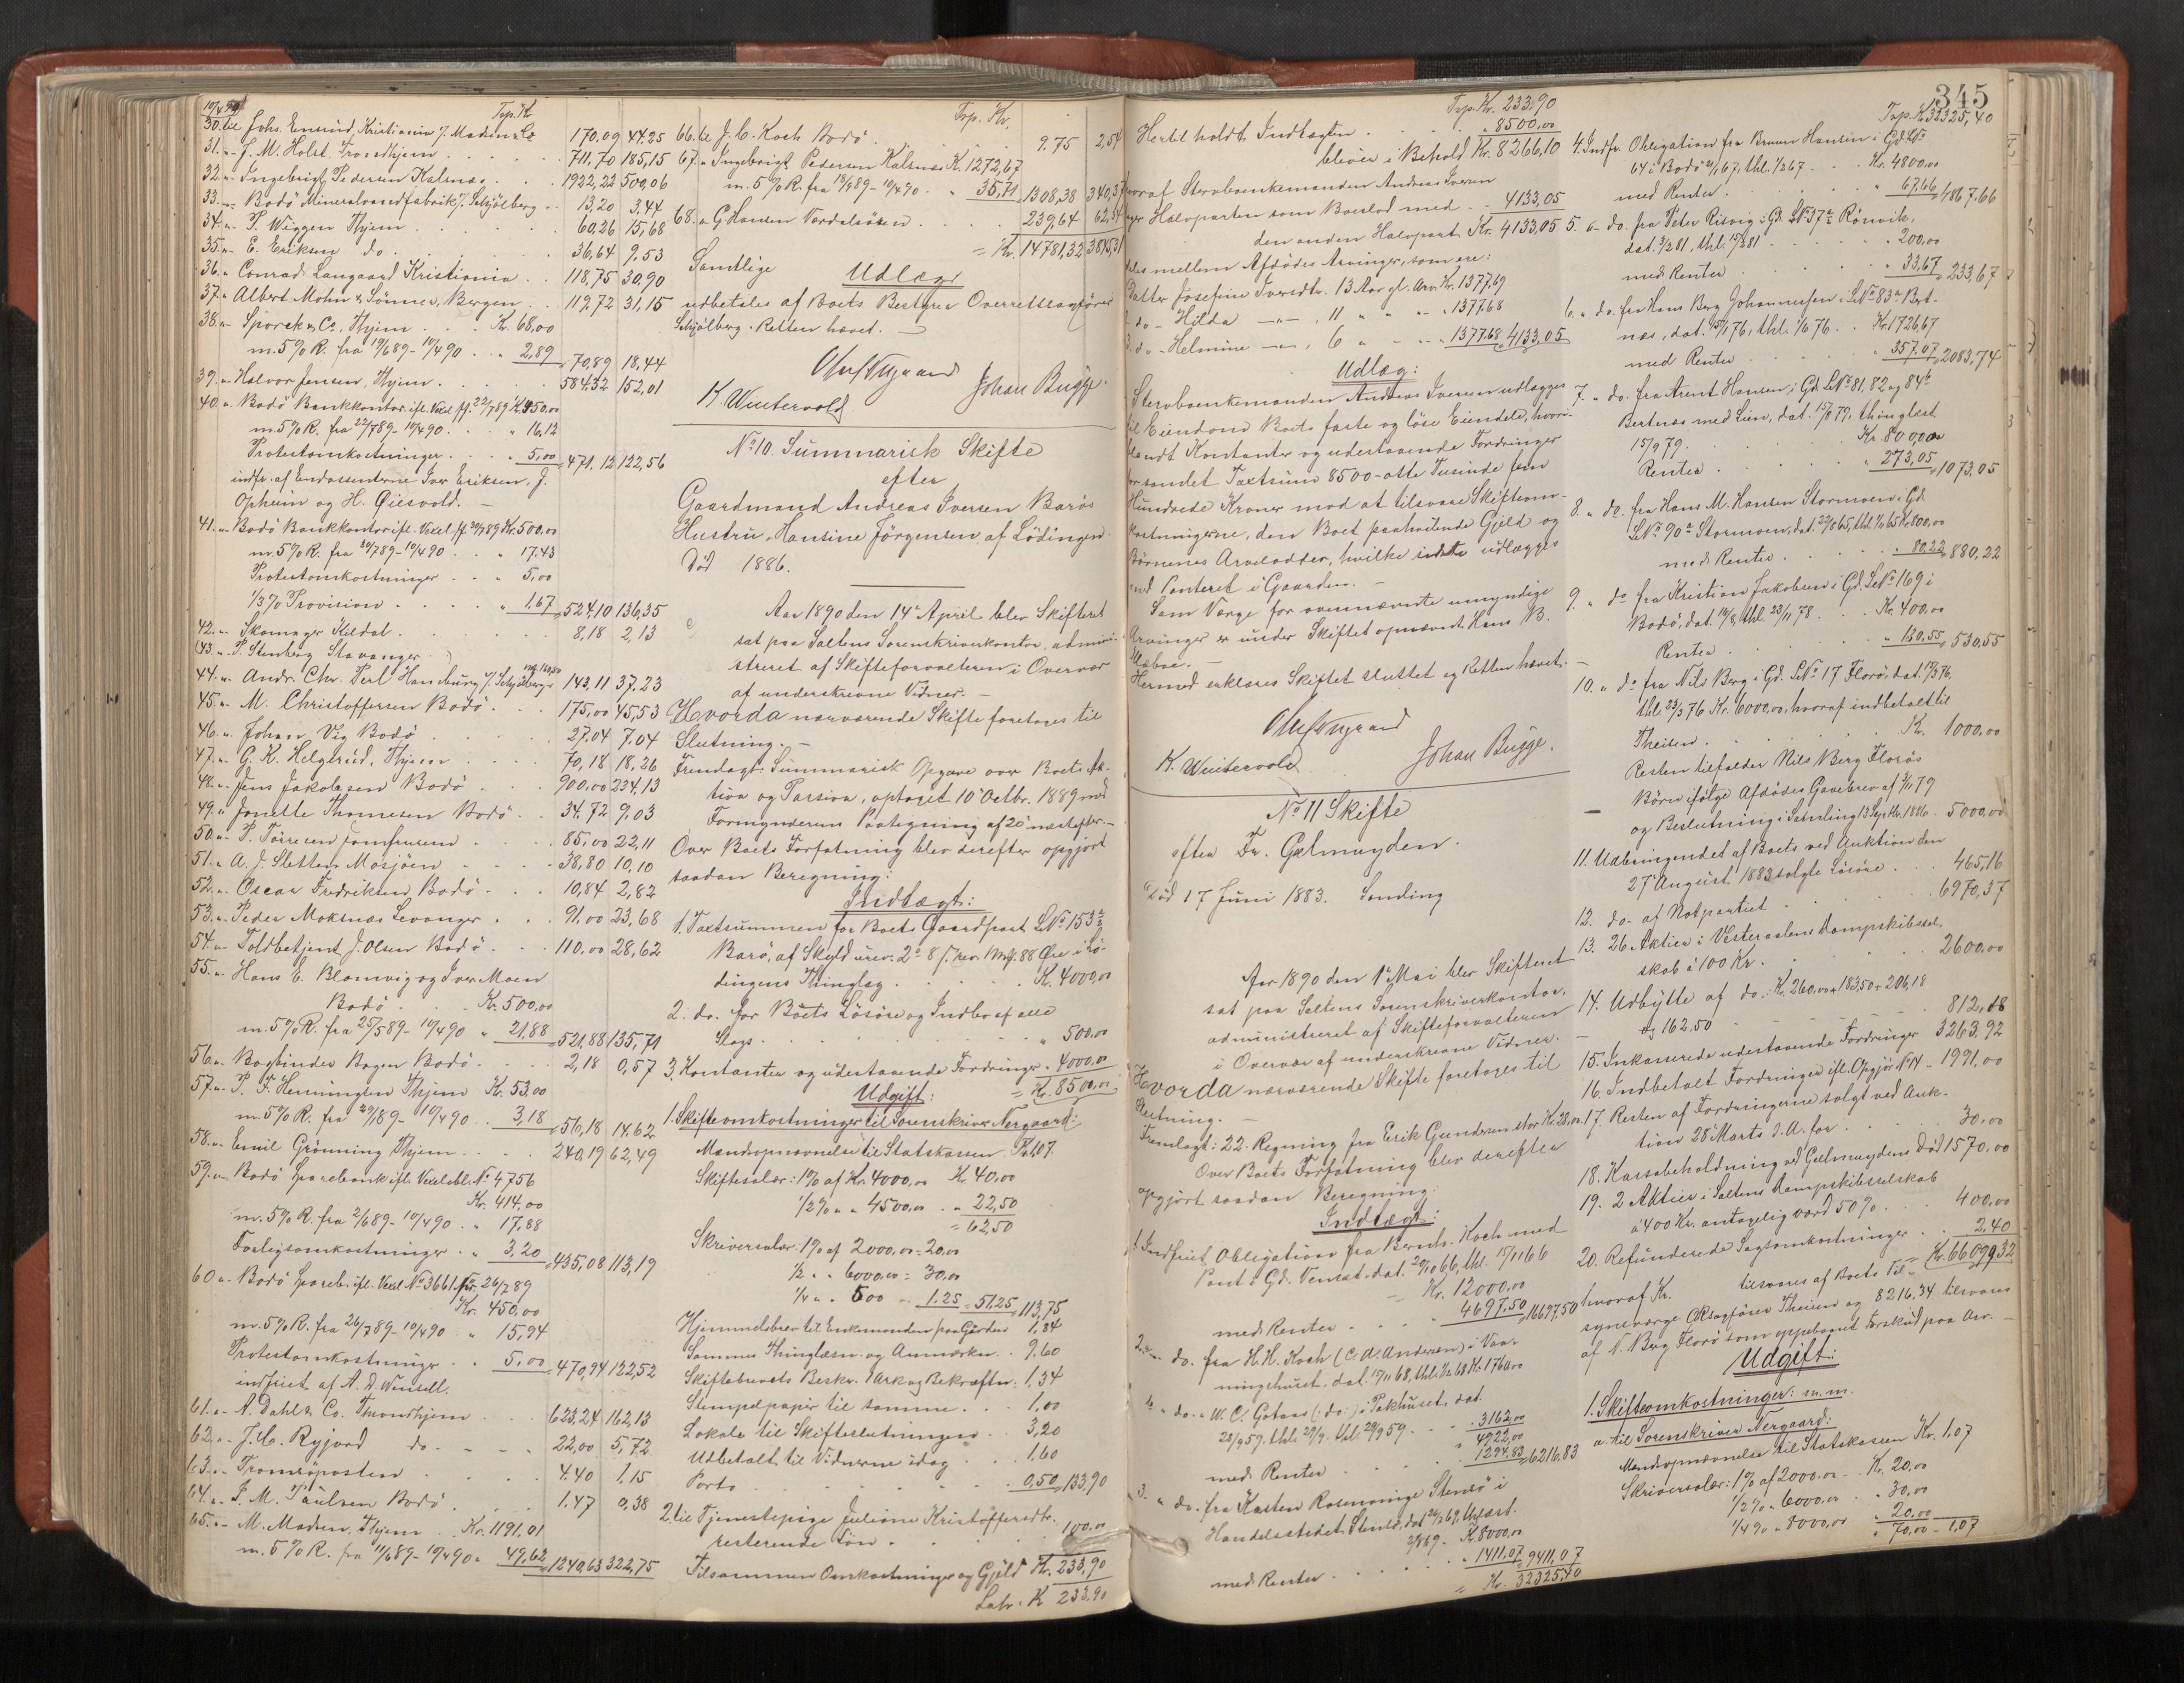 10/4 90
Trsp. Kr.
30. til Johs. Ensrud, Kristiania v/ Madsen & Co 170.09 44.25
31. " J. M. Holst, Trondhjem 711,70 185,15
32. " Ingebrigt Pedersen Kalsnæs 1922,22 500,06
33. " Bodö Mineralvandfabrik v/ Schjölberg 13,20 3,44
34. " P. Wiggen Thjem 60,26 15,68
35. " E. Eriksen do. 36,64 9,53
36. " Conrad Langaard Kristiania 118,75 30,90
37. " Albert Mohn & Sönner, Bergen 119,72 31,15
38. " Sporck & Co, Thjem Kr. 68,00
m. 5% R. fra 19/6 89 - 10/4 90 " 2,89 70,89 18,44
39. " Halvor Jensen, Thjem 584.32 152,01
40. " Bodö Bankkontor ifl. Vexel ff. 22/7 89 Kr. 450.00
m. 5% R. fra 22/7 89 - 10/4 90 " 16,12
Protestomkostninger " 5,00 471,12 122,56
indfr. af Endossenterne Ivar Eriksen, J.
Opheim og H. Giæsvold. -
41. " Bodö Bankkontor ifl. Vexel ff. 30/7 89 Kr. 500.00
m. 5% R. fra 30/7 89 - 10/4 90 " 17.43
Protestomkostninger " 5,00
1/3% Provision " 1.67 524,10 136,35
42. " Skomager Kildal 8,18 2,13
43. " P. Stenberg Stavanger
44. " Andr. Chr. Perl Hamburg v/ Schjölberg 143,11 37,23
45. " M. Christoffersen Bodö 175,00 45,53
46. " Johan Vig Bodö 27.04 7.04
47. " G. K. Helgerud, Thjem 70,18 18,26
48. " Jens Jakobsen Bodö 900,00 234.13
49. " Jonette Thomesen Bodö 34.72 9,03
50. " P. Törresen 85,00 22,11
51. " A. J. Sletten Mosjöen 38,80 10,10
52. " Oscar Fredriksen, Bodö 10,84 2,82
53. " Peder Moksnæs Levanger 91,00 23,68
54. " Toldbetjent J. Olsen Bodö 110,00 28,62
55. " Hans E. Blomvig og Ivar Moen
Bodö Kr. 500,00
m. 5% R. fra 25/5 89 - 10/4 90 " 21,88 521,88 135,71
56. " Bogbinder Bogen Bodö 2,18 0,57
57. " P. F. Henningsen Thjem Kr. 53.00
m. 5% R. fra 29/1 89 - 10/4 90 3,18 56,18 14.62
58. " Emil Grönning Thjem 240,19 62,49
59. " Bodö Sparebank ifl. Vexelobl. No 4756
Kr. 414,00
m. 5% R. fra 2/6 89 - 10/4 90 " 17,88
Forligsomkostninger " 3,20 435,08 113,19
60. " Bodö Spareb. ifl. Vexel No 3661 26/7 89
Kr. 450.00
m. 5% R. fra 26/7 89 - 10/4 90 " 15,94
Protestomkostninger 5,00 470,94 122,52
indfriet af A. D. Wensell.
61. " A. Dahl & Co. Throndhjem 623,24 162,13
62. " J. C. Ryjord do - 22,00 5,72
63. " Tromsöposten 4.40 1.15
64. " J. M. Paulsen Bodö 1.47 0,38
65. " M. Madsen, Thjem Kr. 1191,01
m. 5% R. fra 11/6 89 - 10/4 90 " 49,62 1240,63 322,75
Trsp. Kr.
66. til J. C. Koch Bodö 9.75 2,54
67. " Ingebrigt Pedersen Kalsnæs Kr. 1272,67
m. 5% R. fra 18/9 89 - 10/4 90 " 35,71 1308,38 340,37
68. " G Hansen Værdalsören 239,64 62,34
= Kr. 14781,32 3845,31
Samtlige Udlæg
udbetales af Boets Bestyrer Overretssagförer
Schjölberg. Retten hævet. -
K. Wintervold
Johan Bugge.
No 10. Summarisk Skifte
efter
Gaardmand Andreas Iversen Barös
Hustru, Hansine Jörgensen af Lödingen
Död 1886.
Aar 1890 den 14de April blev Skifteret
sat paa Saltens Sorenskriverkontor, admini-
streret af Skifteforvalteren i Overvær
af underskrevne Vidner. -
Hvorda nærværende Skifte foretoges til
Slutning. -
Fremlagt: Summarisk Opgave over Boets Ak-
tiva og Passiva, optaget 10de Octbr. 1889 med
Formynderens Paategning af 20de næstefter. -
Over Boets Forfatning blev derefter opgjort
saadan Beregning:
Indtægt:
1. Taxtsummen for Boets Gaardpart LNo 153a
Barö, af Skyld urev. 2 8 rev. Mrk. 88 Öre i Lö-
dingens Thinglag Kr. 4000,00
2. do. for Boets Lösöre og Indbo af alle
Slags " 500,00
3. Kontanter og udestaaende Fordringer " 4000,00
= Kr. 8500,00
Udgift:
1. Skifteomkostninger til Sorenskriver Nergaard:
Mandsopnævnelse til Statskassen Kr. 1,07
Skiftesalær: 1% af Kr. 4000,00 Kr. 40,00
1/2% " " 4500,00 " 22,50
= 62,50
Skriversalær. 1% af 2000.00 = 20,00
1/2 " " 6000,00 = 30,00
1/4 " " 500 - 1.25 = 51.25 113,75
Hjemmelsbrev til Enkemanden paa Gården 1,84
Sammes Thinglæsn. og Anmærkn. 9.60
Skiftebrevets Beskr. 1 Ark og Bekræftn: 1,34
Stempelpapir til samme 1,00
Lokale til Skifteslutningen 3,20
Udbetalt til Vidnerne idag 1.60
Porto 0,50 133,90
2. til Tjenestepige Juliane Kristoffersdtr.
resterende Lön 100.00
Tilsammen Omkostninger og Gjeld Kr. 233,90
Latr. Kr. 233.90
Trsp. Kr. 233,90
Hertil holdt Indtægten " 8500,00
bliver i Behold Kr. 8266,10
hvoraf Stervboenkemanden Andreas Iversen
Halvparten som Boeslod med 4133,05
den anden Halvpart Kr. 4133,05
deles mellem Afdödes Arvinger, som ere:
Datter Josefine Iversdtr. 13 Aar gl. Arv Kr. 1377.69
do - Hilda - " - , 11 " " - 1377.68
3. do - Helmine - " - , 6 " - - " 1377.68 4133,05
Udlæg:
Stervboenkemanden Andreas Iversen udlægges
til Eiendom Boets faste og löse Eiendele, hvori-
blandt Kontanter og udestaaende Fordringer
for samlet Taxtsum 8500 - otte Tusinde fem
Hundrede Kroner mod at tilsvare Skifteom-
kostningerne, den Boet paahvilende Gjeld og
Börnenes Arvelodder, hvilke sidste udlægges
med Panteret i Gaarden. -
Som Værge for ovennævnte umyndige
Arvinger er under Skiftet opnævnt Hans B.
Hermed erklæres Skiftet sluttet og Retten hævet. -
K. Wintervold
Johan Bugge.
No 11 Skifte
efter Fr. Gælmuyden.
Död 17 Juni 1883. Samling
Aar 1890 den 1ste Mai blev Skifteret
sat paa Saltens Sorenskriverkontor,
administreret af Skifteforvalteren
i Overvær af underskrevne Vidner. -
Hvorda nærværende Skifte foretoges til
Slutning. -
Fremlagt: 22. Regning fra Erik Gundersen stor Kr. 28,00.
Over Boets Forfatning blev derefter
opgjort saadan Beregning:
Indtægt:
1. Indfriet Obligation fra Bernh. Koch med
Pant i Gd. Vensæt dat. 20/10 66, thl. 17/11 66
Kr. 12000.00
med Renter 4697.50 16697,50
2. " do. fra H. H. Koch (C. A. Andersen) i Vaa-
ningshuset. dat. 17/11 68, Kr. 1760.00
" do. " W. C. Gotaas (: do :) i Pakhuset, dat.
28/9 59, thl. 29/9 59 3162,00
" 4922,00
med Renter 1294.83 6216,83
3. " do. fra Karsten Rosenvinge Stensö i
Handelsstedet Stensö, dat.
Kr. 8000,00
med Renter " 1411.07 9411,07
= Kr. 32325,40
345
Trsp. Kr. 32325,40
4. Indfr. Obligation fra Hansen i Gd. LNo
64 i Bodö Kr. 4800.00
med Renter " 67.66 4867.66
5. " do. fra Peter Risvig i Gd. LNo 37a Rönvik,
dat. 3/2 81, thl. 15/3 81 " 200,00
med Renter " 33,67 233,67
6. " do. fra Hans Berg Johannessen i LNo 83a Bert-
næs, dat. Kr. 1726,67
med Renter " 357.07 2083,74
7. " do. fra Arent Hansen, i Gd. LNo 81, 82 og 84b
Bertnæs med dat. 15/9 79, thinglæst
15/9 79. Kr. 800,00
Renter " 273,05 1073,05
8. " do. fra Hans M. Hansen Stormoen i Gd.
LNo 90a Stormoen, Kr. 800,00
med Renter " 80.22 880,22
9. " do fra Kristian Jakobsen i Gd. LNo 169 i
Bodö, thl. 23/11 78 Kr. 400,00
Renter " 130,55 530,55
10. " do fra Nils Berg i Gd. LNo 17 Florö, dat.
thl. 23/3 76 Kr. 6000,00, hvoraf indbetalt til
Theisen Kr. 1000,00
Resten tilfalder Nils Berg Florös
Börn ifölge Afdödes Gavebrev af
og Beslutning i Samling 13 Septbr. 1886 5000,00
11. Udbringendet af Boets ved Auktion den
27 August 1883 solgte Lösöre 465,16
12. do - af Notpartiet 6970,37
13. 26 Aktier i Vesteraalens Dampskibssel-
skab á 100 Kr. 2600,00
14. Udbytte af do: Kr. 260,00 + 183,50 + 206,18
og 162,50 812,18
15. Inkasserede udestaaende Fordringer 3263,92
16. Indbetalt Fordringer ifl. Opgjör No 14 - 1991,00
17. Resten af Fordringerne solgt ved Auk-
tion 28de Marts d. A. for 30,00
18. Kassabeholdning ved Gælmuydens Död 1570,00
19. 2 Aktier i Saltens Dampskibsselskab
á 400 Kr. antagelig værd 50% 400,00
20. Refunderede Sagsomkostninger 2,40
= Kr. 66099,32
hvoraf Kr. tilsvares af Boets Til-
synsværge ORsagförer Theisen og 8216,34 tilsvares
af N. Berg Florö som oppebaaret Forskud paa Arv. -
Udgift:
1. Skifteomkostninger: m. m.
a. til Sorenskriver Nergaard:
Mandsopnævnelse til Statskassen Kr. 1.07
Skriversalær: 1% af 2000.00 Kr. 20,00
1/2% " 6000,00 " 30,00
1/4% " 8000,00 " 20,00
" 70,00 - 1,07